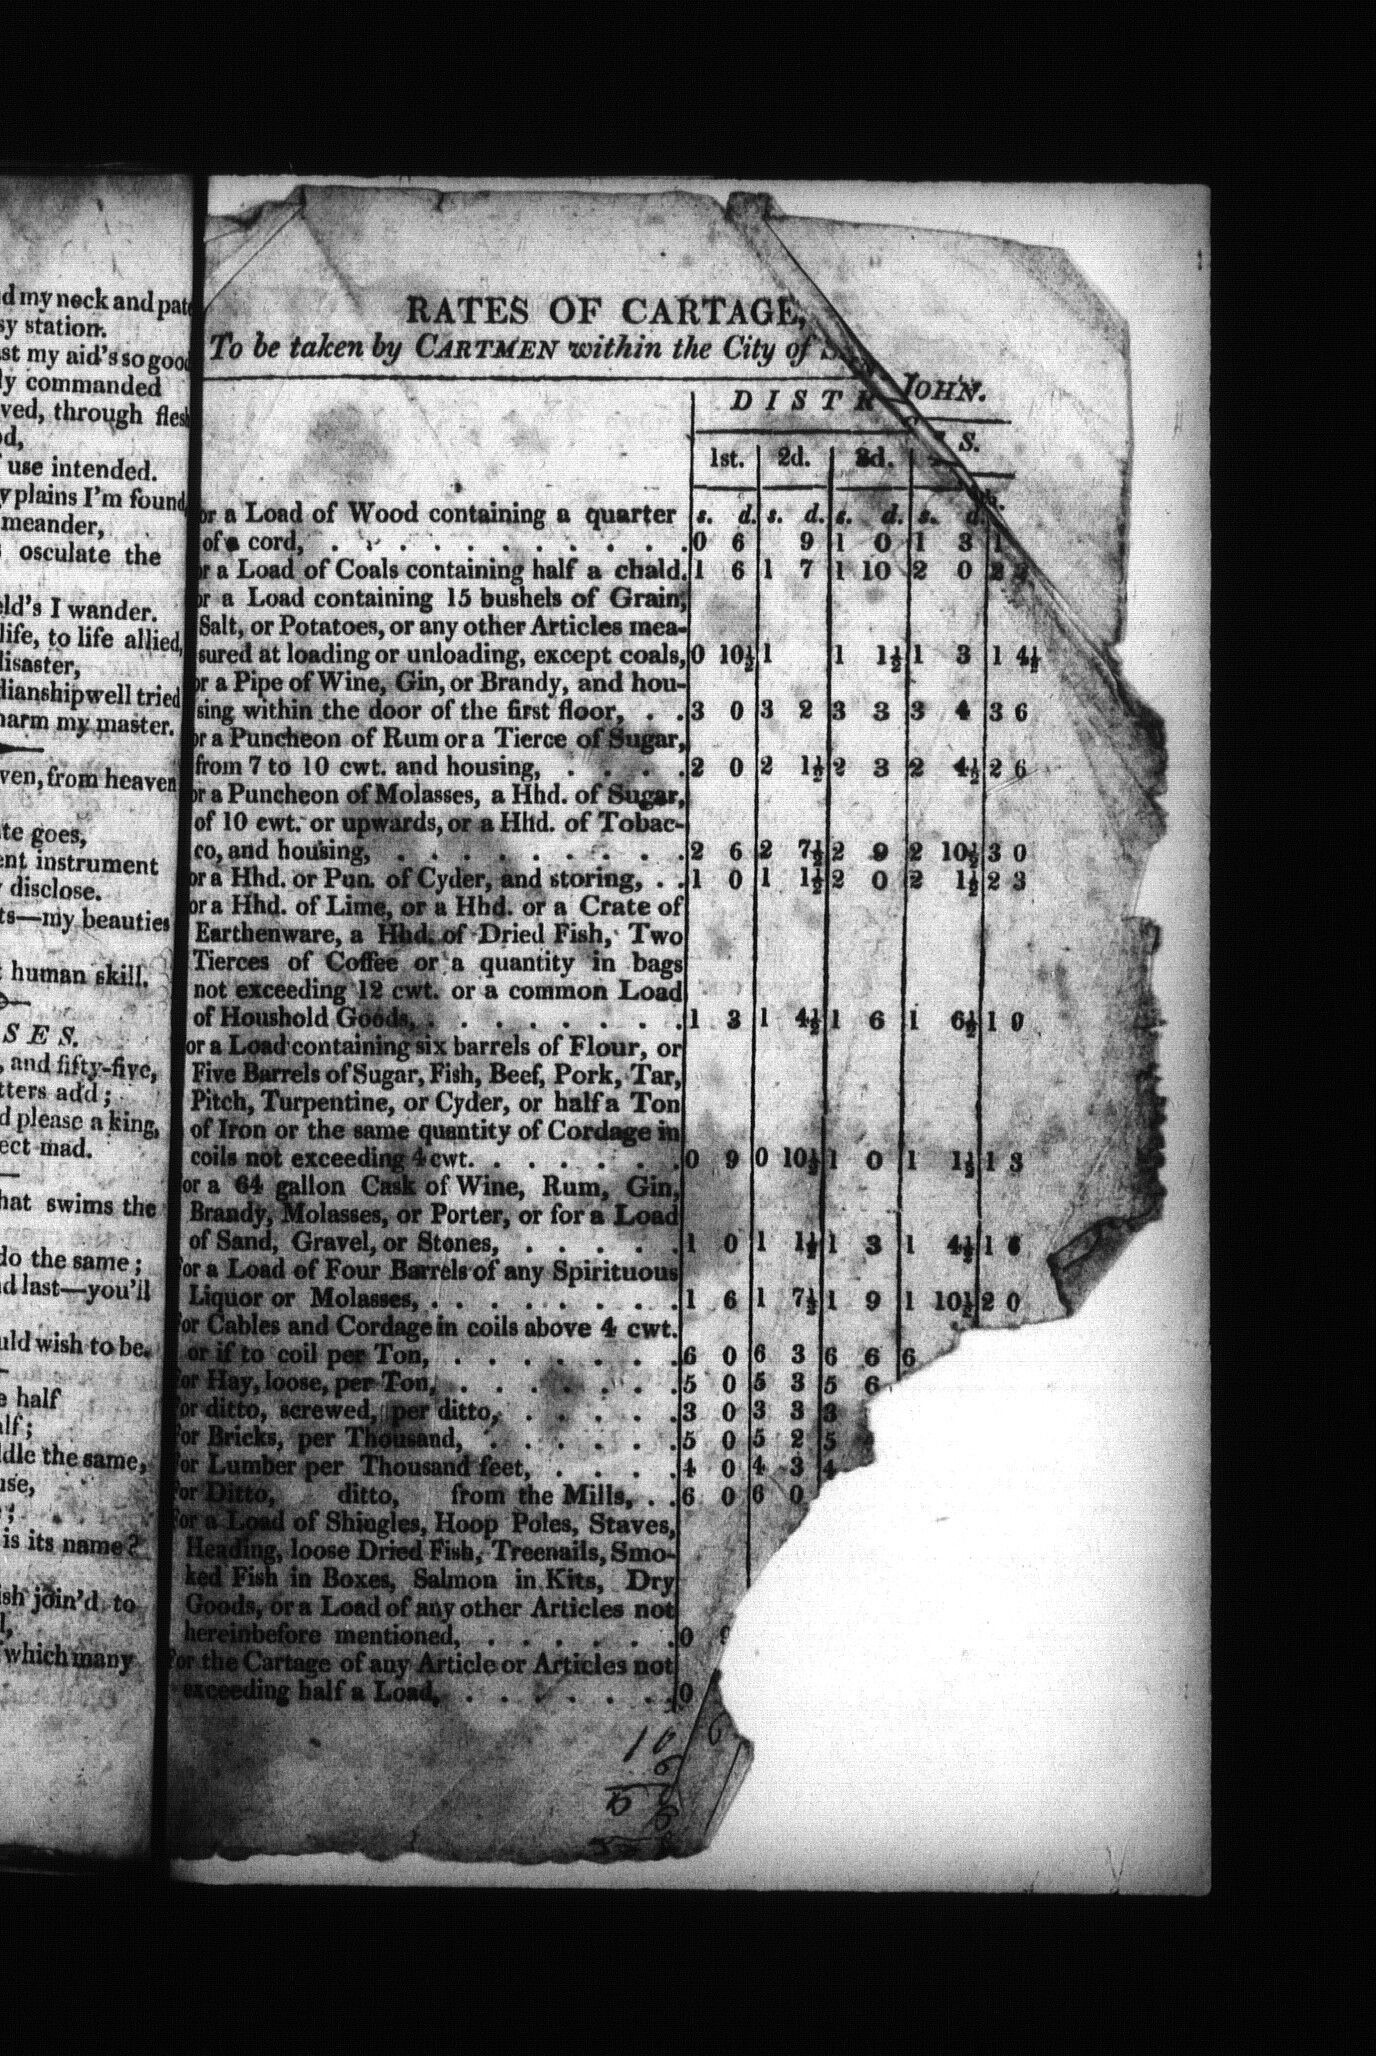 d my neck and pate
sy station.
st my aid's so good
ly commanded
ved, through flesh
od,
use intended.
y plains I'm found,
meander,
osculate the
eld's I wander.
life, to life allied,
disaster,
dianship well tried
harm my master.
ven, from heaven
te goes,
ent instrument
disclose.
ts—my beauties
human skill.
S E S.
, and fifty-five,
tters add;
d please a king,
ect mad.
hat swims the
do the same;
d last—you'll
uld wish to be.
e half
alf;
ddle the same,
use,
;
is its name?
ish join'd to
l,
which many
RATES OF CARTAGE,
To be taken by CARTMEN within the City of JOHN.
D I S T R S.
1st. 2d. 3d.
or a Load of Wood containing a quarter s. d. s. d. s. d. s. d.
of a cord, . . . . . . . . . . 0 6 9 1 0 1 3 1
or a Load of Coals containing half a chald. 1 6 1 7 1 10 2 0 2
or a Load containing 15 bushels of Grain,
Salt, or Potatoes, or any other Articles mea-
sured at loading or unloading, except coals, 0 10½ 1 1 1½ 1 3 1 4½
or a Pipe of Wine, Gin, or Brandy, and hou-
sing within the door of the first floor, . . 3 0 3 2 3 3 3 4 3 6
or a Puncheon of Rum or a Tierce of Sugar,
from 7 to 10 cwt. and housing, . . . . 2 0 2 1½ 2 3 2 4½ 2 6
or a Puncheon of Molasses, a Hhd. of Sugar,
of 10 cwt. or upwards, or a Hhd. of Tobac-
co, and housing, . . . . . . . . . 2 6 2 7½ 2 9 2 10½ 3 0
or a Hhd. or Pun. of Cyder, and storing, . . 1 0 1 1½ 2 0 2 1½ 2 3
or a Hhd. of Lime, or a Hhd. or a Crate of
Earthenware, a Hhd. of Dried Fish, Two
Tierces of Coffee or a quantity in bags
not exceeding 12 cwt. or a common Load
of Houshold Goods, . . . . . . . . 1 3 1 4½ 1 6 1 6½ 1 9
or a Load containing six barrels of Flour, or
Five Barrels of Sugar, Fish, Beef, Pork, Tar,
Pitch, Turpentine, or Cyder, or half a Ton
of Iron or the same quantity of Cordage in
coils not exceeding 4 cwt. . . . . . . 0 9 0 10½ 1 0 1 1½ 1 3
or a 64 gallon Cask of Wine, Rum, Gin,
Brandy, Molasses, or Porter, or for a Load
of Sand, Gravel, or Stones, . . . . . 1 0 1 1½ 1 3 1 4½ 1 6
or a Load of Four Barrels of any Spirituous
Liquor or Molasses, . . . . . . . . 1 6 1 7½ 1 9 1 10½ 2 0
or Cables and Cordage in coils above 4 cwt.
or if to coil per Ton, . . . . . . . 6 0 6 3 6 6 6
or Hay, loose, per Ton, . . . . . . . 5 0 5 3 5 6
or ditto, screwed, per ditto, . . . . . 3 0 3 3 3
or Bricks, per Thousand, . . . . . . 5 0 5 2 5
or Lumber per Thousand feet, . . . . 4 0 4 3 4
or Ditto, ditto, from the Mills, . . 6 0 6 0
For a Load of Shingles, Hoop Poles, Staves,
Heading, loose Dried Fish, Treenails, Smo-
ked Fish in Boxes, Salmon in Kits, Dry
Goods, or a Load of any other Articles not
hereinbefore mentioned, . . . . . . 0 9
for the Cartage of any Article or Articles not
exceeding half a Load, . . . . . . . 0